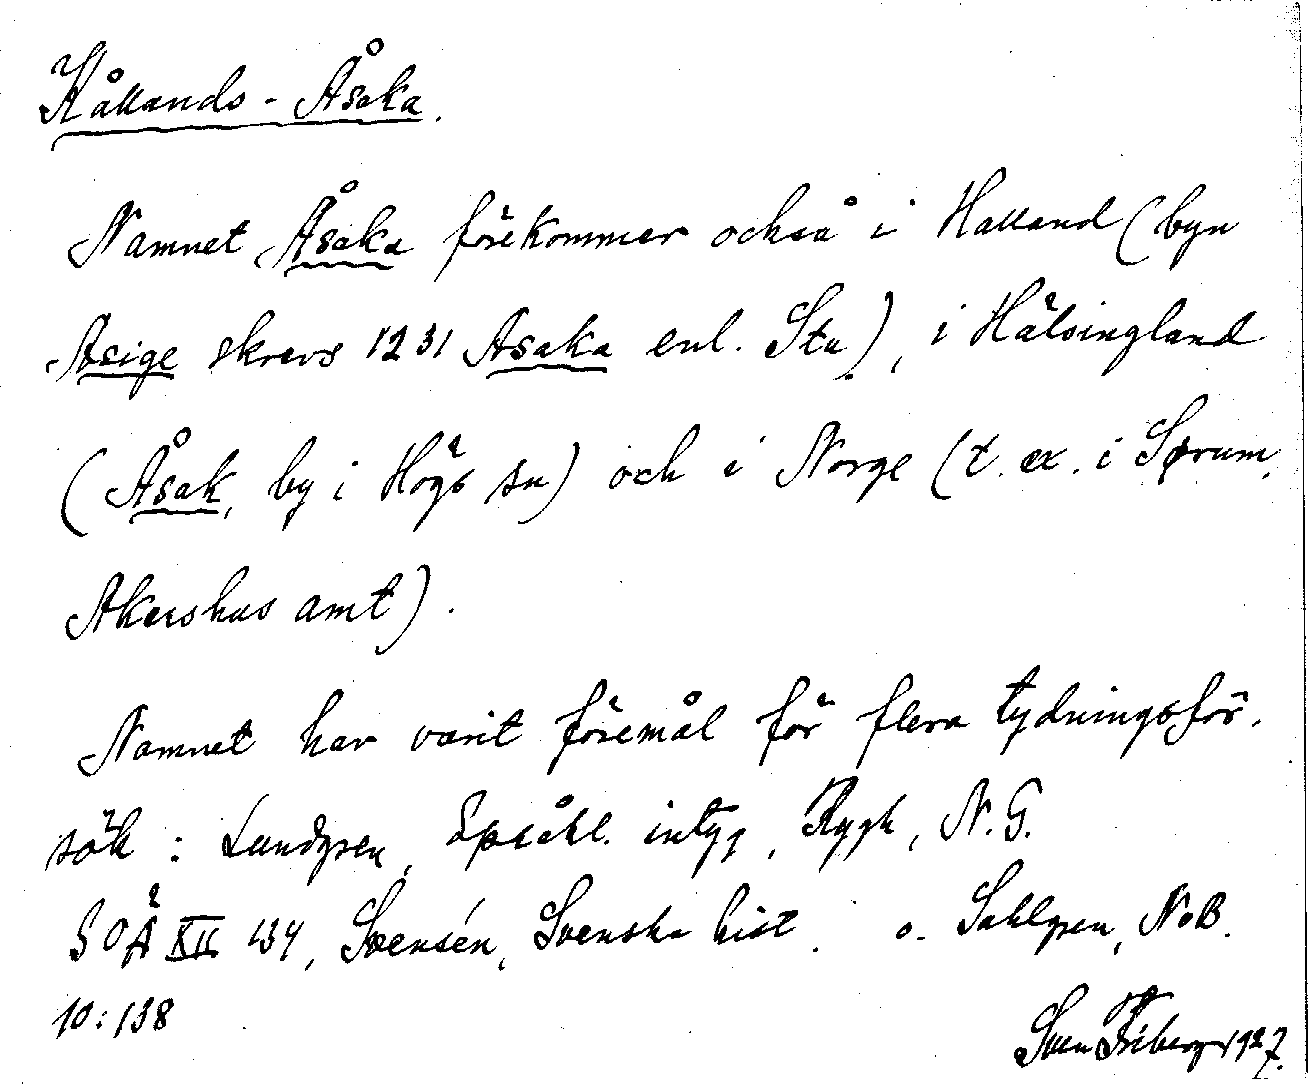 Kållands-Åsaka.
Namnet Åsaka förekommer också i Halland (byn
Asige skrevs 1231 Asaka enl. Sta), i Hälsingland
(Åsak, by i Högs sn) och i Norge (t. ex. i Sørum,
Akershus amt).
Namnet har varit föremål för flera tydningsför-
sök: Lundgren, Språkl. intyg, Rygh, N.G.
SOÄ XII 134, Svensén, Svenska hist. o. Sahlgren, NoB.
10:138
Sven Friberg 1927.